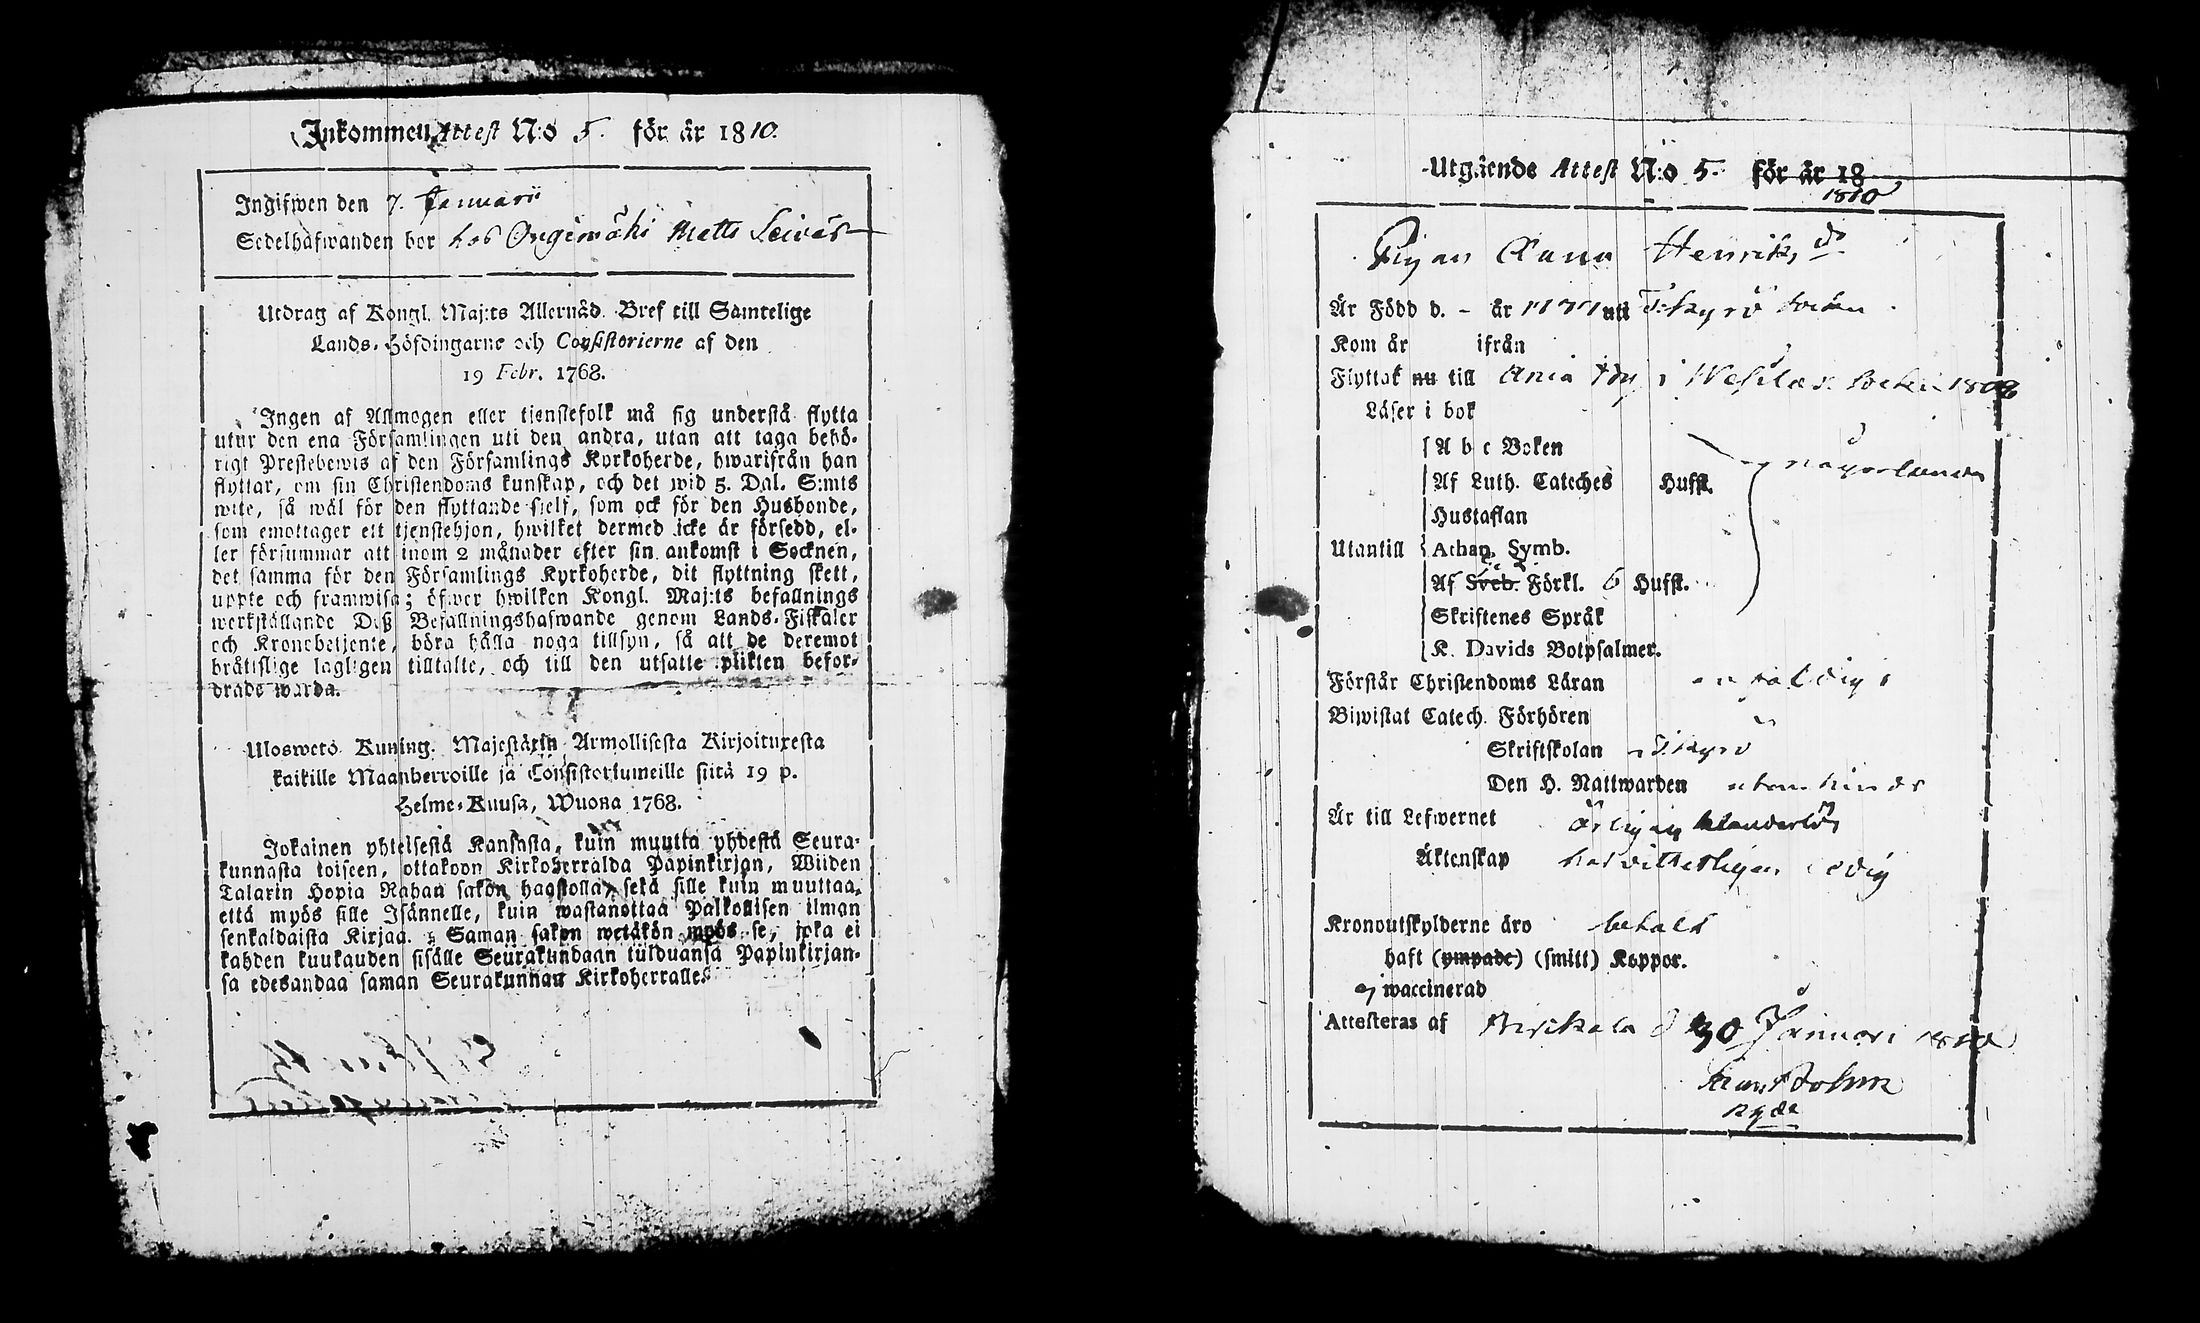 Inkommen Attest N:o 5. för år 1810.
Ingifwen den 7. Januarii
Sedelhafwanden bor hos Ongemäki Matts Leivas
Utdrag af Kongl. Maj:ts Allernåd. Bref till Samtelige
Lands-Höfdingarne och Consistorierne af den
19 Febr. 1768.
Ingen af Allmogen eller tjenstefolk må sig understå flytta
utur den ena Församlingen uti den andra, utan att taga behö-
rigt Prestebewis af den Församlings Kyrkoherde, hwarifrån han
flyttar, om sin Christendoms kunskap, och det wid 5. Dal. S:mts
wite, så wäl för den flyttande sjelf, som ock för den Husbonde,
som emottager ett tjenstehjon, hwilket dermed icke är försedd, el-
ler försummar att inom 2 månader efter sin ankomst i Socknen,
det samma för den Församlings Kyrkoherde, dit flyttning skett,
uppte och framwisa; öfwer hwilken Kongl. Maj:ts befallnings
werkställande Deß Befallningshafwande genom Lands-Fiskaler
och Kronobetjente, böra hålla noga tillsyn, så att de deremot
brätislige lagligen tilltalte, och till den utsatte plikten befor-
drade warda.
Ulosweto Kuning. Majestätin Armollisesta Kirjoituxesta
kaikille Maanherroille ja Consistoriumeille siitä 19 p.
Helme-Kuusa, Wuona 1768.
Jokainen yhteisestä Kansasta, kuin muutta yhdestä Seura-
kunnasta toiseen, ottakoon Kirkoherralda Papinkirjan, Wiiden
Talarin Hopia Rahan sakon haastolla, sekä sille kuin muuttaa,
että myös sille Isännelle, kuin wastanottaa Palkollisen ilman
senkaldaista Kirjaa. Saman sakon wetäkön myös se, joka ei
kahden kuukauden sisälle Seurakundaan tülduansa Papinkirjan-
sa edesandaa saman Seurakunnan Kirkoherralle.
Utgående Attest N:o 5. för år 18
1810
Pigan Anna Henriks dr
Är Född d. - år 1777 uti Ikyro Socken
Kom år ifrån
Flyttat nu till Ania by i Socken 1808
Läser i bok
A b c Boken
Af Luth. Catches Hufst.
Hustaflan
Utantill Athan. Symb.
Af Sveb. Förkl. 6 Hufst.
Skriftenes Språk
K. Davids Botpsalmer.
Förstår Christendoms Läran enfaldigt
Biwistat Catech. Förhören
Skriftskolan i Ikyro
Den H. Nattwarden utan hinder
Är till Lefwernet ärlig och klanderlös
Äktenskap ledig
Kronoutskylderne äro betalt
haft (ympade) (smitt) Koppor.
ej waccinerad
Attesteras af Birckala d 30 Januari 1810